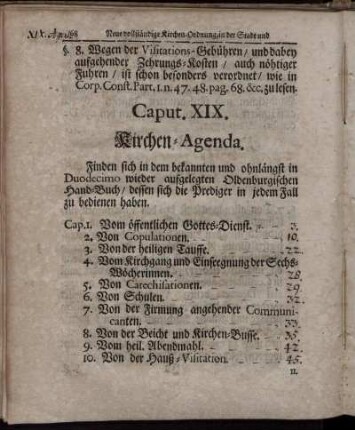 Neue vollständige Kirchen-Ordnung, in der Stadt und
§. 8. Wegen der Visitations-Gebühren / und dabey
aufgehender Zehrungs-Kosten / auch nöhtiger
Fuhren / ist schon besonders verordnet / wie in
Corp. Const. Part. 1. n. 47. 48. pag. 68. &c. zu lesen.
Caput. XIX.
Kirchen-Agenda.
Finden sich in dem bekannten und ohnlängst in
Duodecimo wieder aufgelegten Oldenburgischen
Hand-Buch / dessen sich die Prediger in jedem Fall
zu bedienen haben.
Cap. 1. Vom öffentlichen Gottes-Dienst. - - 3.
2. Von Copulationen. - - 10.
3. Von der heiligen Tauffe. - - 22.
4. Vom Kirchgang und Einseegnung der Sechs-
Wöcherinnen. - - 28.
5. Von Catechisationen. - - 29.
6. Von Schulen. - - 32.
7. Von der Firmung angehender Communi-
canten. - - 33.
8. Von der Beicht und Kirchen-Busse. - 35.
9. Vom heil. Abendmahl. - - 42.
10. Von der Hauß-Visitation. - - 45.
11.